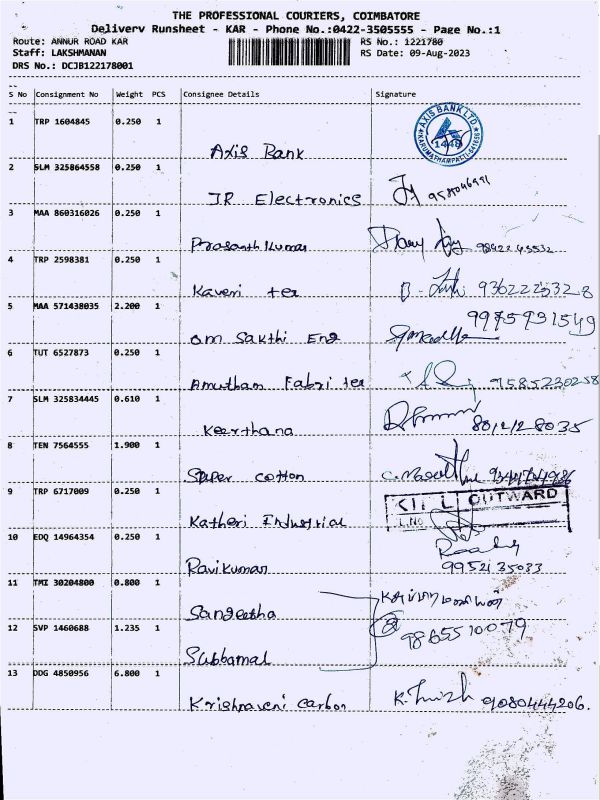 THE PROFESSIONAL COURIERS, COIMBATORE
Delivery Runsheet - KAR - Phone No.:0422-3505555 - Page No.:1
Route: ANNUR ROAD KAR RS No.: 1221780
Staff: LAKSHMANAN RS Date: 09-Aug-2023
DRS No.: DCJB122178001
S No Consignment No Weight PCS Consignee Details Signature
1 TRP 1604845 0.250 1
Axis Bank
AXIS BANK LTD
1448
KARUMATHAMPATTI-641659
2 SLM 325864558 0.250 1
JR Electronics
3 MAA 860316026 0.250 1
Prasanth Kumar
4 TRP 2598381 0.250 1
Kaveri tex 9362225328
5 MAA 571438035 2.200 1
9975931549
om Sakthi Eng
6 TUT 6527873 0.250 1
Amutham Fabri tex 9585230258
7 SLM 325834445 0.610 1
Keerthana 8012128035
8 TEN 7564555 1.900 1
Super cotton
9 TRP 6717009 0.250 1
OUTWARD
Katheri Industrial
10 EDQ 14964354 0.250 1
Ravikumar 9952135033
11 TMI 30204800 0.800 1
Sangeetha
12 SVP 1460688 1.235 1
9865510079
Subbamal
13 DDG 4850956 6.800 1
Krishnaveni Carbon 9080444206.